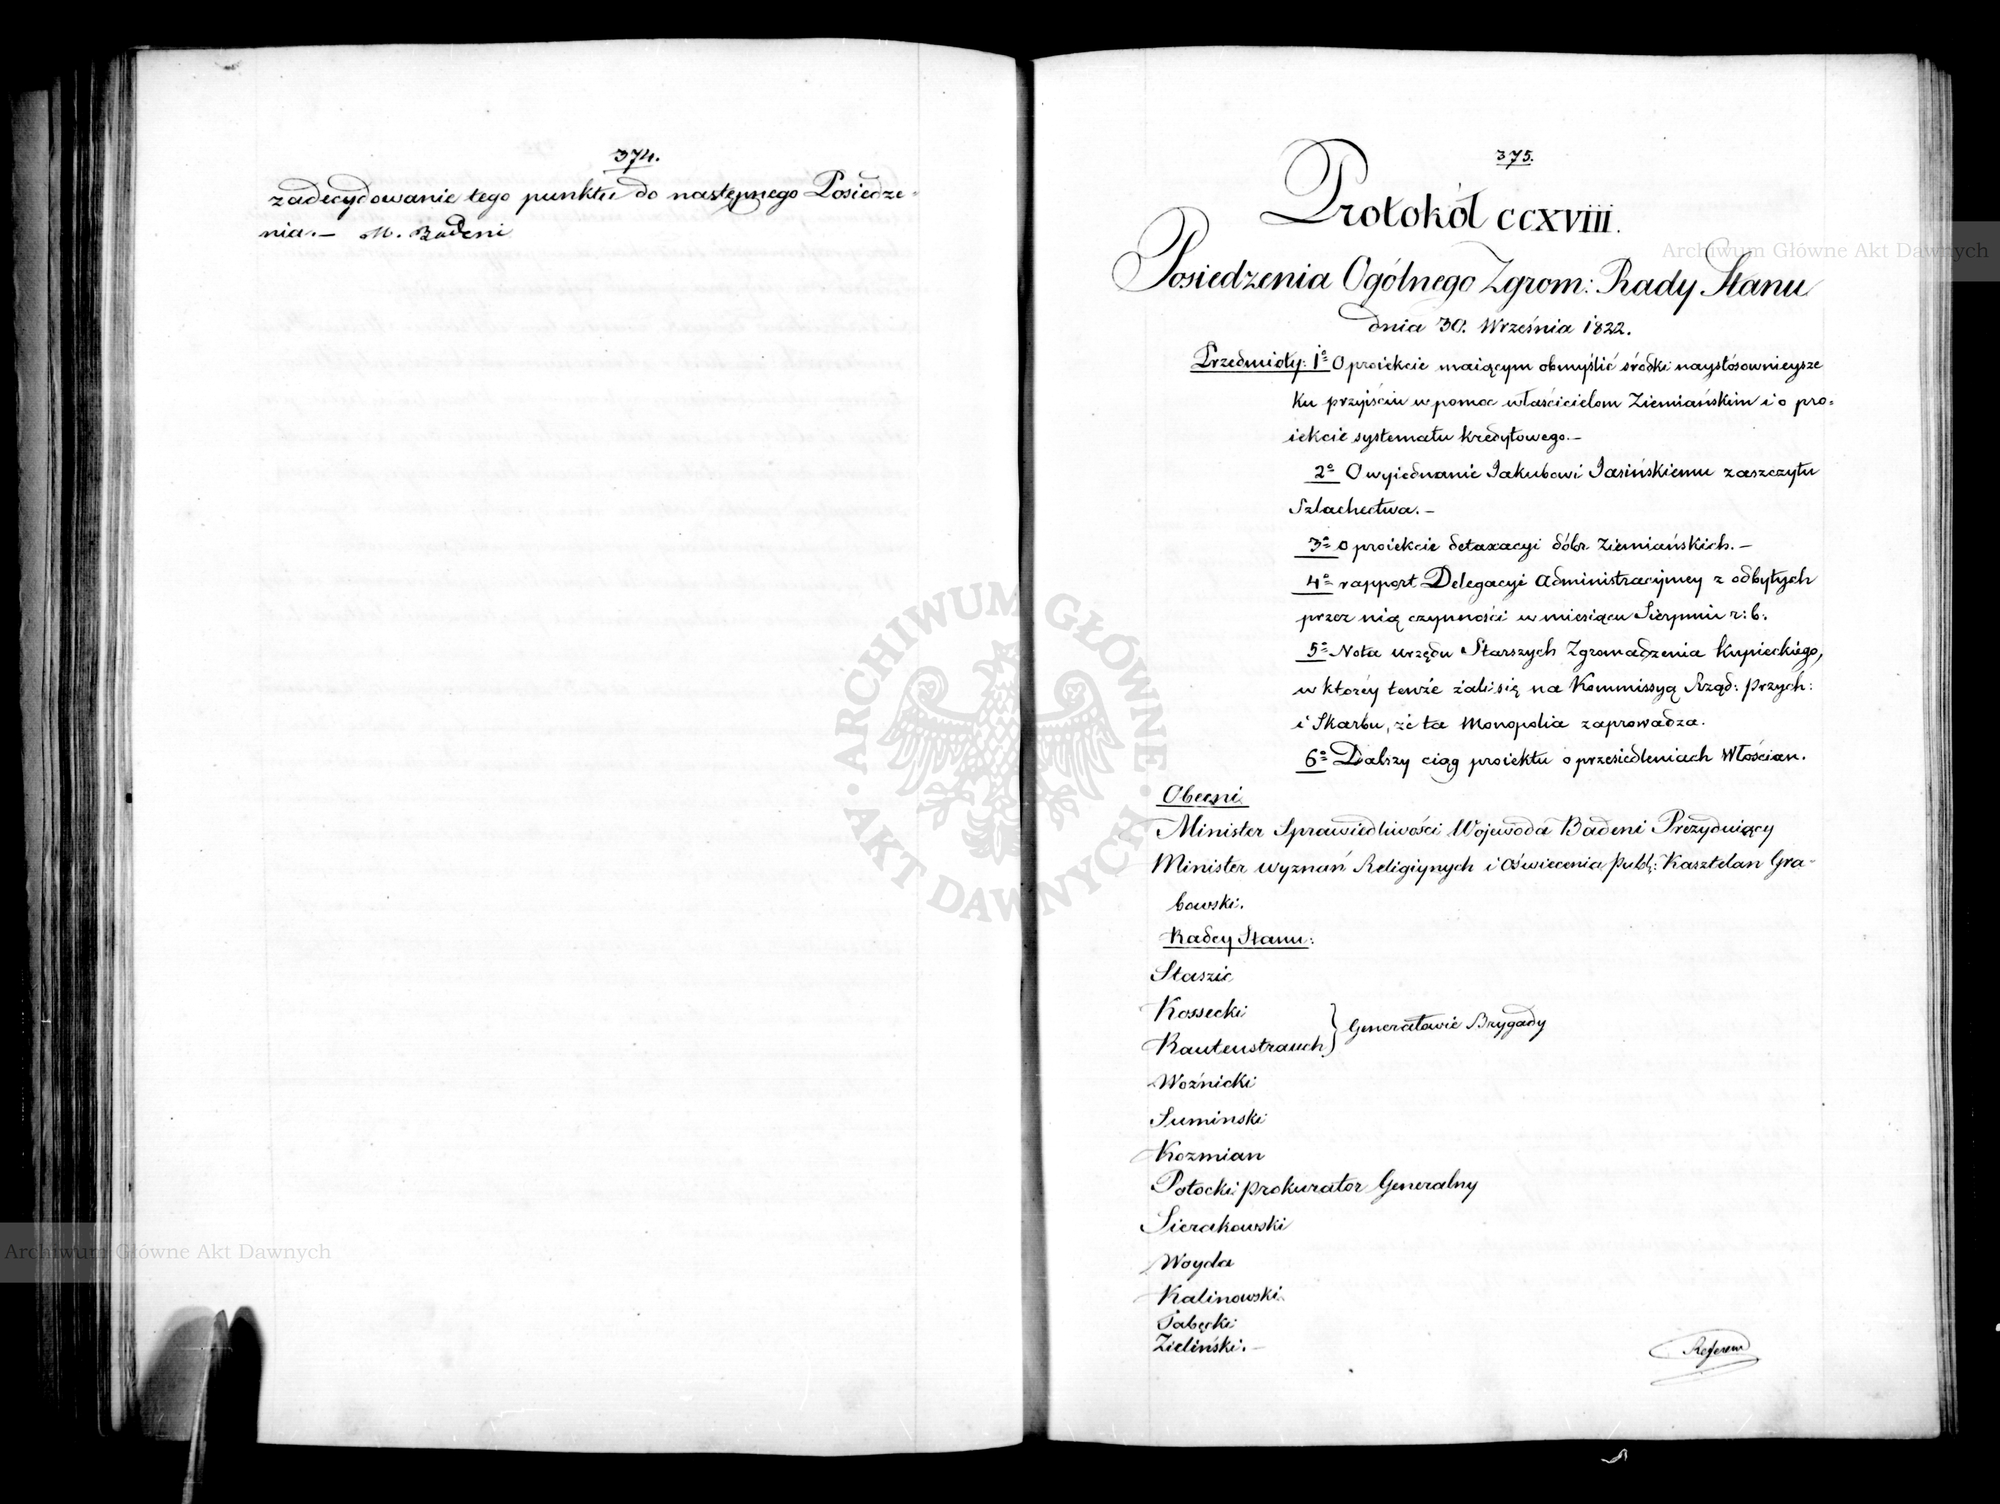 374.
zadecydowanie tego punktu do następnego Posiedze=
nia.— M. Badeni
375.
Protokół CCXVIII.
Posiedzenia Ogólnego Zgrom: Rady Stanu
dnia 30. Września 1822.
Przedmioty: 1º O proiekcie maiącym obmyślić środki naystósownieysze
ku przyiściu w pomoc właścicielom Ziemiańskim i o pro=
iekcie systematu kredytowego.—
2º O wyiednanie Jakubowi Jasińskiemu zaszczytu
Szlachectwa.—
3º o proiekcie detaxacyi dóbr Ziemiańskich.—
4º rapport Delegacyi Administracyjney z odbytych
przez nią czynności w miesiącu Sierpniu r: b:
5º Nota urzędu Starszych Zgromadzenia Kupieckiego,
w ktorey tenże żali się na Kommissyą Rząd: Przych:
i Skarbu, że ta Monopolia zaprowadza.
6º Dalszy ciąg proiektu o przesiedleniach Włościan.
Obecni
Minister Sprawiedliwości Wojewoda Badeni Prezyduiący
Minister wyznań Religiynych i oświecenia publ: Kasztelan Gra-
bowski.
Radcy Stanu:
Staszic
Kossecki
Rautenstrauch } Generałowie Brygady
Woźnicki
Suminski
Kozmian
Potocki prokurator Generalny
Sierakowski
Woyda
Kalinowski
Tabęcki
Zieliński.—
Referen
Archiwum Główne Akt Dawnych
ARCHIWUM GŁÓWNE AKT DAWNYCH
Archiwum Główne Akt Dawnych